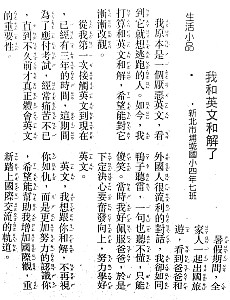 生活小品
我和英文和解了
新北市埔墘國小四年七班
我原本是一個厭惡英文,看
到它就想逃跑的人。如今,我
打算和英文和解,希望能對它
漸漸改觀。
從我第一次接觸英文到現在
,已經有三年的時間,這期間
為了應付考試,經常痛苦不已
,直到不久前才真正體會英文
的重要性。
暑假期間,全
家人一起出國旅
遊,看到爸爸和
外國人很流利的對話,我卻如同
鴨子聽雷,一句也聽不懂,只能
傻笑。當時我好佩服爸爸,於是
下定決心要奮發向上,努力學好
英文。
英文,我想跟你和解,不再視
你如仇,而是更加努力的認識你
,希望能幫助我增加國際觀,重
新踏上國際交流的軌道。